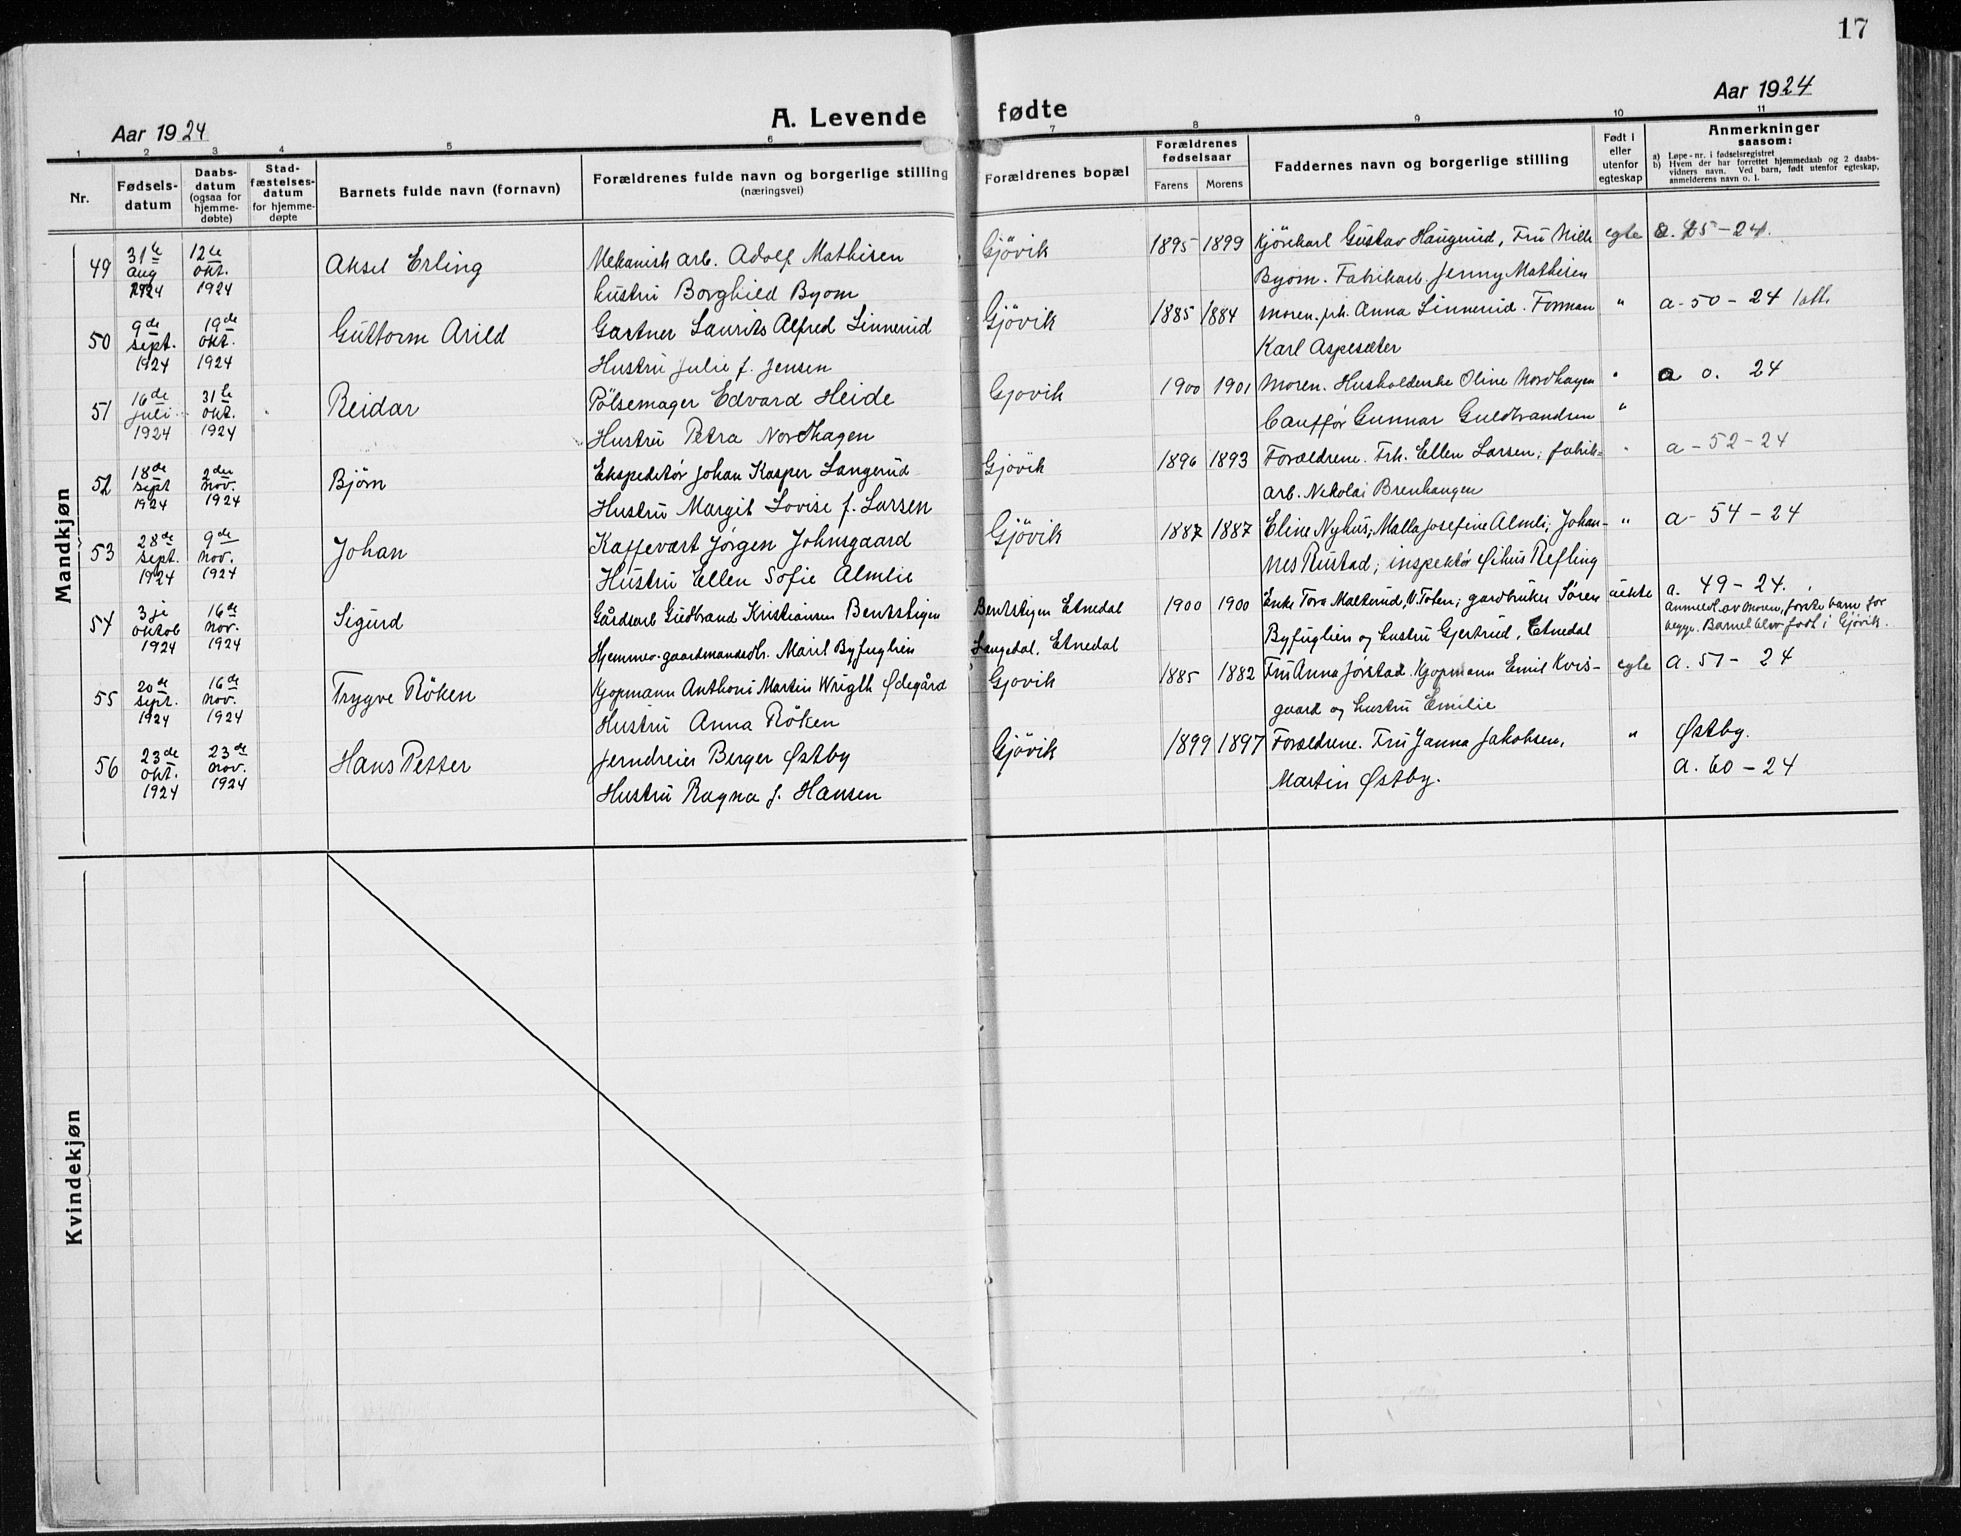 17
Aar 1924
A. Levende fødte
Aar 1924
1 2 3 4 5 6 7 8 9 10 11
Nr.
Fødsels-
datum
Daabs-
datum
(ogsaa for
hjemme-
døbte)
Stad-
fæstelses-
datum
for hjemme-
døpte
Barnets fulde navn (fornavn)
Forældrenes fulde navn og borgerlige stilling
(næringsvei)
Forældrenes bopæl
Forældrenes
fødselsaar
Farens Morens
Faddernes navn og borgerlige stilling
Født i
eller
utenfor
egteskap
Anmerkninger
saasom:
a) Løpe-nr. i fødselsregistret
b) Hvem der har forrettet hjemmedaab og 2 daabs-
vidners navn. Ved barn, født utenfor egteskap,
anmelderens navn o. l.
Mandkjøn
49 31te Aug 1924 12te Okt. 1924 Aksel Erling Mekanisk arb. Adolf Mathisen Gjövik 1895 1899 Kjörekarl Gustav Haugerud, Fru egte 24.
Hustru Borghild Byom Byom. Fabrikarb. Jenny Mathisen
50 9de Sept. 1924 19de Okt. 1924 Guttorm Arild Gartner Laurits Alfred Linnerud Gjövik 1885 1884 Moren, frk. Anna Linnerud. Forman " a-50-24
Hustru Julie f. Jensen Karl Aspesæter
51 16de Juli 1924 31te Okt. 1924 Reidar Pölsemager Edvard Heide Gjovik 1900 1901 Moren. Husholderske Oline Nordhagen " a o. 24
Hustru Petra Nordhagen Cauffør Gunnar Guldbrandsen "
52 18de Sept 1924 2den Nov. 1924 Bjørn Ekspeditør Johan Kasper Langerud Gjövik 1896 1893 Forældrene. Frk. Ellen Larsen; fabrik= " a-52-24
Hustru Margit Lovise f. Larsen arb. Nikolai Brenhaugen
53 28de Sept. 1924 9de Nov. 1924 Johan Kaffevært Jørgen Johnsgaard Gjövik 1887 1887 Eline Nyhus; Malla Josefine Almli; Johan- " a-54-24
Hustru Ellen Sofie Almlie nes Rustad; inspektør Refling
54 3je Oktob 1924 16de Nov. 1924 Sigurd Gårdsarb Gudbrand Kristiansen Bentsstigen Bentstigen Etnedal 1900 1900 Enke Tora Malterud, V. Toten; gardbruker Søren uekte a. 49-24.
Hjemmev. gaardmandsdtr. Marit Byfuglien Langedal, Etnedal Byfuglien og hustru Gjertrud, Etnedal
Anmeldt av moren, første barn for
begge. Barnet blev født i Gjövik.
55 20de Sept. 1924 16de Nov. 1924 Trygve Röken Kjopmann Anthoni Martin Wrigth Ødegård Gjovik 1885 1882 Fru Anna Jorstad. Kjopmann Emil Kvis- egte a. 51-24
Hustru Anna Röken gaard og hustru Emilie
56 23de Okt. 1924 23de Nov. 1924 Hans Petter Jerndreier Berger Østby Gjövik 1899 1897 Forældrene. Fru Janna Jakobsen, " Østby.
Hustru Ragna f. Hansen Martin Østby. a. 60-24
Kvindekjøn